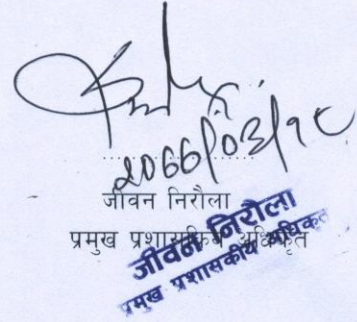 २०७७/०३/१८
जीवन निरौला
प्रमुख प्रशासकिय अधिकृत
जीवन निरौला
प्रमुख प्रशासकीय अधिकृत